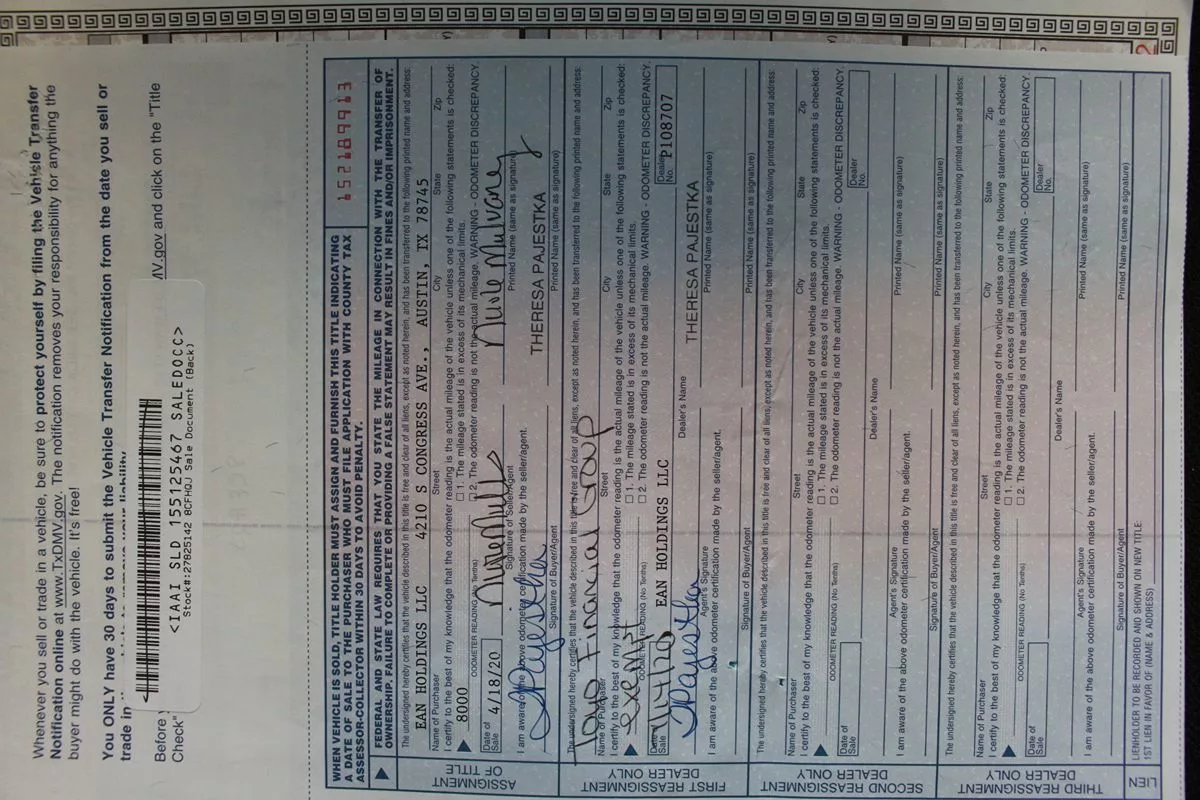 Whenever you sell or trade in a vehicle, be sure to protect yourself by filing the Vehicle Transfer
Notification online at www.TxDMV.gov. The notification removes your responsibility for anything the
buyer might do with the vehicle. It's free!
You ONLY have 30 days to submit the Vehicle Transfer Notification from the date you sell or
trade in
Before
.gov and click on the "Title
Check"
<IAAI SLD 155125467 SALEDOCC>
Stock#:27825142 8CFHOJ Sale Document (Back)
WHEN VEHICLE IS SOLD, TITLE HOLDER MUST ASSIGN AND FURNISH THIS TITLE INDICATING
A DATE OF SALE TO THE PURCHASER WHO MUST FILE APPLICATION WITH COUNTY TAX
ASSESSOR-COLLECTOR WITHIN 30 DAYS TO AVOID PENALTY.
152189913
FEDERAL AND STATE LAW REQUIRES THAT YOU STATE THE MILEAGE IN CONNECTION WITH THE TRANSFER OF
OWNERSHIP. FAILURE TO COMPLETE OR PROVIDING A FALSE STATEMENT MAY RESULT IN FINES AND/OR IMPRISONMENT.
ASSIGNMENT
OF TITLE
The undersigned hereby certifies that the vehicle described in this title is free and clear of all liens, except as noted herein, and has been transferred to the following printed name and address:
EAN HOLDINGS LLC 4210 S CONGRESS AVE., AUSTIN, TX 78745
Name of Purchaser Street City State Zip
I certify to the best of my knowledge that the odometer reading is the actual mileage of the vehicle unless one of the following statements is checked:
8000
☐ 1. The mileage stated is in excess of its mechanical limits.
☐ 2. The odometer reading is not the actual mileage. WARNING - ODOMETER DISCREPANCY.
ODOMETER READING (No Tenths)
Date of
Sale
4/18/20
Signature of Seller/Agent
Printed Name (same as signature)
I am aware of the above odometer certification made by the seller/agent.
THERESA PAJESTKA
Signature of Buyer/Agent
Printed Name (same as signature)
FIRST REASSIGNMENT
DEALER ONLY
The undersigned hereby certifies that the vehicle described in this title is free and clear of all liens, except as noted herein, and has been transferred to the following printed name and address:
Financial Group
Name of Purchaser Street City State Zip
I certify to the best of my knowledge that the odometer reading is the actual mileage of the vehicle unless one of the following statements is checked:
☐ 1. The mileage stated is in excess of its mechanical limits.
☐ 2. The odometer reading is not the actual mileage. WARNING - ODOMETER DISCREPANCY.
exempt
ODOMETER READING (No Tenths)
Date of
Sale
EAN HOLDINGS LLC
Dealer's Name
Dealer
No.
P108707
THERESA PAJESTKA
Agent's Signature
Printed Name (same as signature)
I am aware of the above odometer certification made by the seller/agent.
Signature of Buyer/Agent
Printed Name (same as signature)
SECOND REASSIGNMENT
DEALER ONLY
The undersigned hereby certifies that the vehicle described in this title is free and clear of all liens, except as noted herein, and has been transferred to the following printed name and address:
Name of Purchaser Street City State Zip
I certify to the best of my knowledge that the odometer reading is the actual mileage of the vehicle unless one of the following statements is checked:
☐ 1. The mileage stated is in excess of its mechanical limits.
☐ 2. The odometer reading is not the actual mileage. WARNING - ODOMETER DISCREPANCY.
ODOMETER READING (No Tenths)
Date of
Sale
Dealer's Name
Dealer
No.
Agent's Signature
Printed Name (same as signature)
I am aware of the above odometer certification made by the seller/agent.
Signature of Buyer/Agent
Printed Name (same as signature)
THIRD REASSIGNMENT
DEALER ONLY
The undersigned hereby certifies that the vehicle described in this title is free and clear of all liens, except as noted herein, and has been transferred to the following printed name and address:
Name of Purchaser Street City State Zip
I certify to the best of my knowledge that the odometer reading is the actual mileage of the vehicle unless one of the following statements is checked:
☐ 1. The mileage stated is in excess of its mechanical limits.
☐ 2. The odometer reading is not the actual mileage. WARNING - ODOMETER DISCREPANCY
ODOMETER READING (No Tenths)
Date of
Sale
Dealer's Name
Dealer
No.
Agent's Signature
Printed Name (same as signature)
I am aware of the above odometer certification made by the seller/agent.
Signature of Buyer/Agent
Printed Name (same as signature)
LIEN
LIENHOLDER TO BE RECORDED AND SHOWN ON NEW TITLE:
1ST LIEN IN FAVOR OF (NAME & ADDRESS)